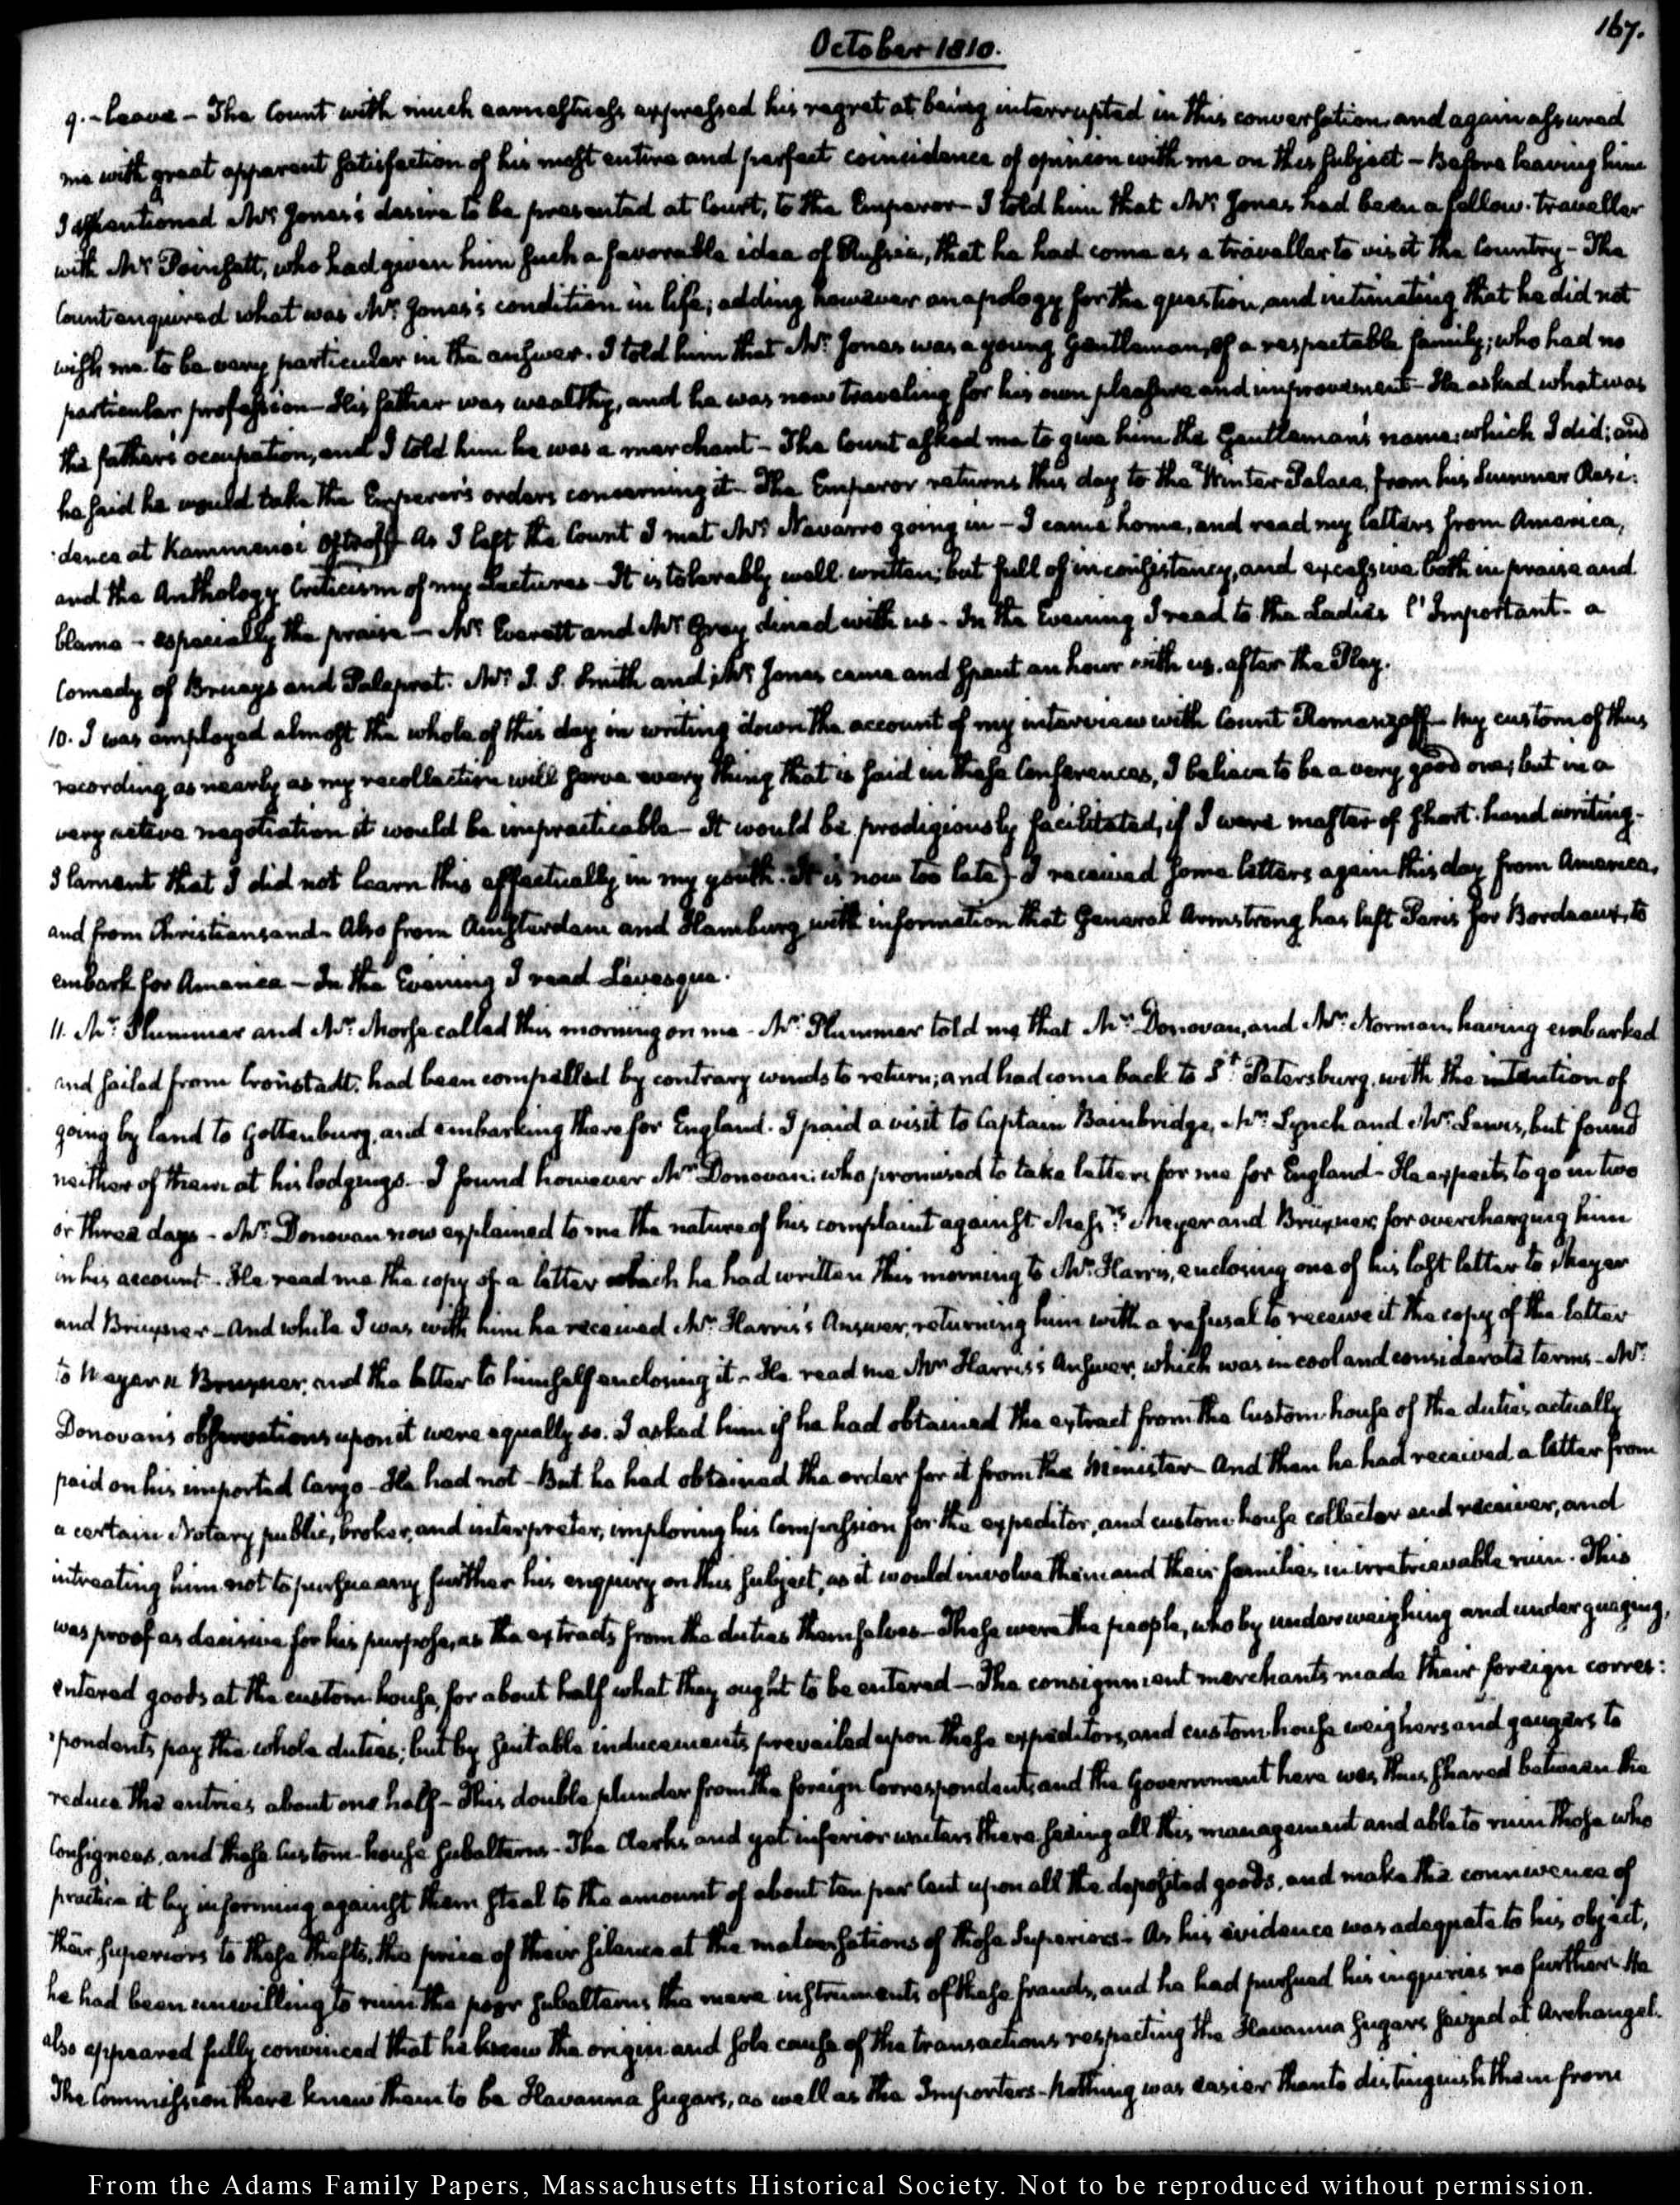 October 1810.
167.
9. - leave - The Count with much earnestness expressed his regret at being interrupted in this conversation and again assured
me with great apparent satisfaction of his most entire and perfect coincidence of opinion with me on this subject - Before leaving him
I mentioned Mr. Jones's desire to be presented at Court, to the Emperor - I told him that Mr. Jones had been a fellow-traveller
with Mr. Poinsett, who had given him such a favorable idea of Russia, that he had come as a traveller to visit the Country - The
Count enquired what was Mr. Jones's condition in life; adding however an apology for the question, and intimating that he did not
wish me to be very particular in the answer. I told him that Mr. Jones was a young Gentleman, of a respectable family; who had no
particular profession - His father was wealthy, and he was now traveling for his own pleasure and improvement - He asked what was
the father's occupation, and I told him he was a marchant - The Count asked me to give him the Gentleman's name; which I did; and
he said he would take the Emperor's orders concerning it - The Emperor returns this day to the Winter Palace, from his Summer Resi:
:dence at Kammenoi Ostroff As I left the Count I met Mr. Navarro going in - I came home, and read my letters from America,
and the Anthology Criticism of my Lectures - It is tolerably well written; but full of inconsistency, and excessive both in praise and
blame - especially the praise - Mr. Everett and Mr. Gray dined with us - In the Evening I read to the Ladies l'Important - a
Comedy of Brueys and Palaprat. Mr. J. S. Smith and Mr. Jones came and spent an hour with us, after the Play.
10. I was employed almost the whole of this day in writing down the account of my interview with Count Romanzoff - My custom of thus
recording as nearly as my recollection will serve every thing that is said in these Conferences, I believe to be a very good one; but in a
very active negotiation it would be impracticable - It would be prodigiously facilitated, if I were master of short-hand writing -
I lament that I did not learn this effectually in my youth. It is now too late) - I received some letters again this day from America,
and from Christiansand - Also from Amsterdam and Hamburg with information that General Armstrong has left Paris for Bordeaux, to
embark for America - In the Evening I read Levesque.
11. Mr. Plummer and Mr. Morse called this morning on me - Mr. Plummer told me that Mr. Donovan, and Mr. Norman, having embarked
and sailed from Cronstadt, had been compelled by contrary winds to return; and had come back to St. Petersburg, with the intention of
going by land to Gottenburg, and embarking there for England. I paid a visit to Captain Bainbridge, Mr. Lynch and Mr. Lewis, but found
neither of them at his lodgings - I found however Mr. Donovan; who promised to take letters for me for England - He expects to go in two
or three days - Mr. Donovan now explained to me the nature of his complaint against Messrs. Meyer and Bruxner, for overcharging him
in his account - He read me the copy of a letter which he had written this morning to Mr. Harris, enclosing one of his last letter to Meyer
and Bruxner - And while I was with him he received Mr. Harris's Answer, returning him with a refusal to receive it the copy of the letter
to Meyer & Bruxner, and the letter to himself enclosing it - He read me Mr. Harris's Answer, which was in cool and considerate terms - Mr.
Donovan's observations upon it were equally so. I asked him if he had obtained the extract from the Custom-house of the duties actually
paid on his imported Cargo - He had not - But he had obtained the order for it from the Minister - And then he had received a letter from
a certain Notary public, broker, and interpreter, imploring his Compassion for the expeditor, and custom-house collector and receiver, and
intreating him not to pursue any further his enquiry on this subject, as it would involve them and their families in irretrievable ruin. This
was proof as decisive for his purpose, as the extracts from the duties themselves - These were the people, who by underweighing and under guaging,
entered goods at the custom-house, for about half what they ought to be entered - The consignment merchants made their foreign corres:
:pondents pay the whole duties; but by suitable inducements prevailed upon these expeditors, and custom-house weighers and gaugers to
reduce the entries about one half - This double plunder from the foreign Correspondents, and the Government here was thus shared between the
Consignees, and these Custom-house subalterns - The Clerks and yet inferior writers there seeing all this management and able to ruin those who
practice it by informing against them steal to the amount of about ten per Cent upon all the deposited goods, and make the connivence of
their superiors to these thefts, the price of their silence at the malversations of those Superiors - As his evidence was adequate to his object,
he had been unwilling to ruin the poor subalterns the mere instruments of these frauds, and he had pursued his inquiries no further - He
also appeared fully convinced that he knew the origin and sole cause of the transactions respecting the Havanna sugars seized at Archangel.
The Commission there knew them to be Havanna sugars, as well as the Importers - Nothing was easier than to distinguish them from
From the Adams Family Papers, Massachusetts Historical Society. Not to be reproduced without permission.